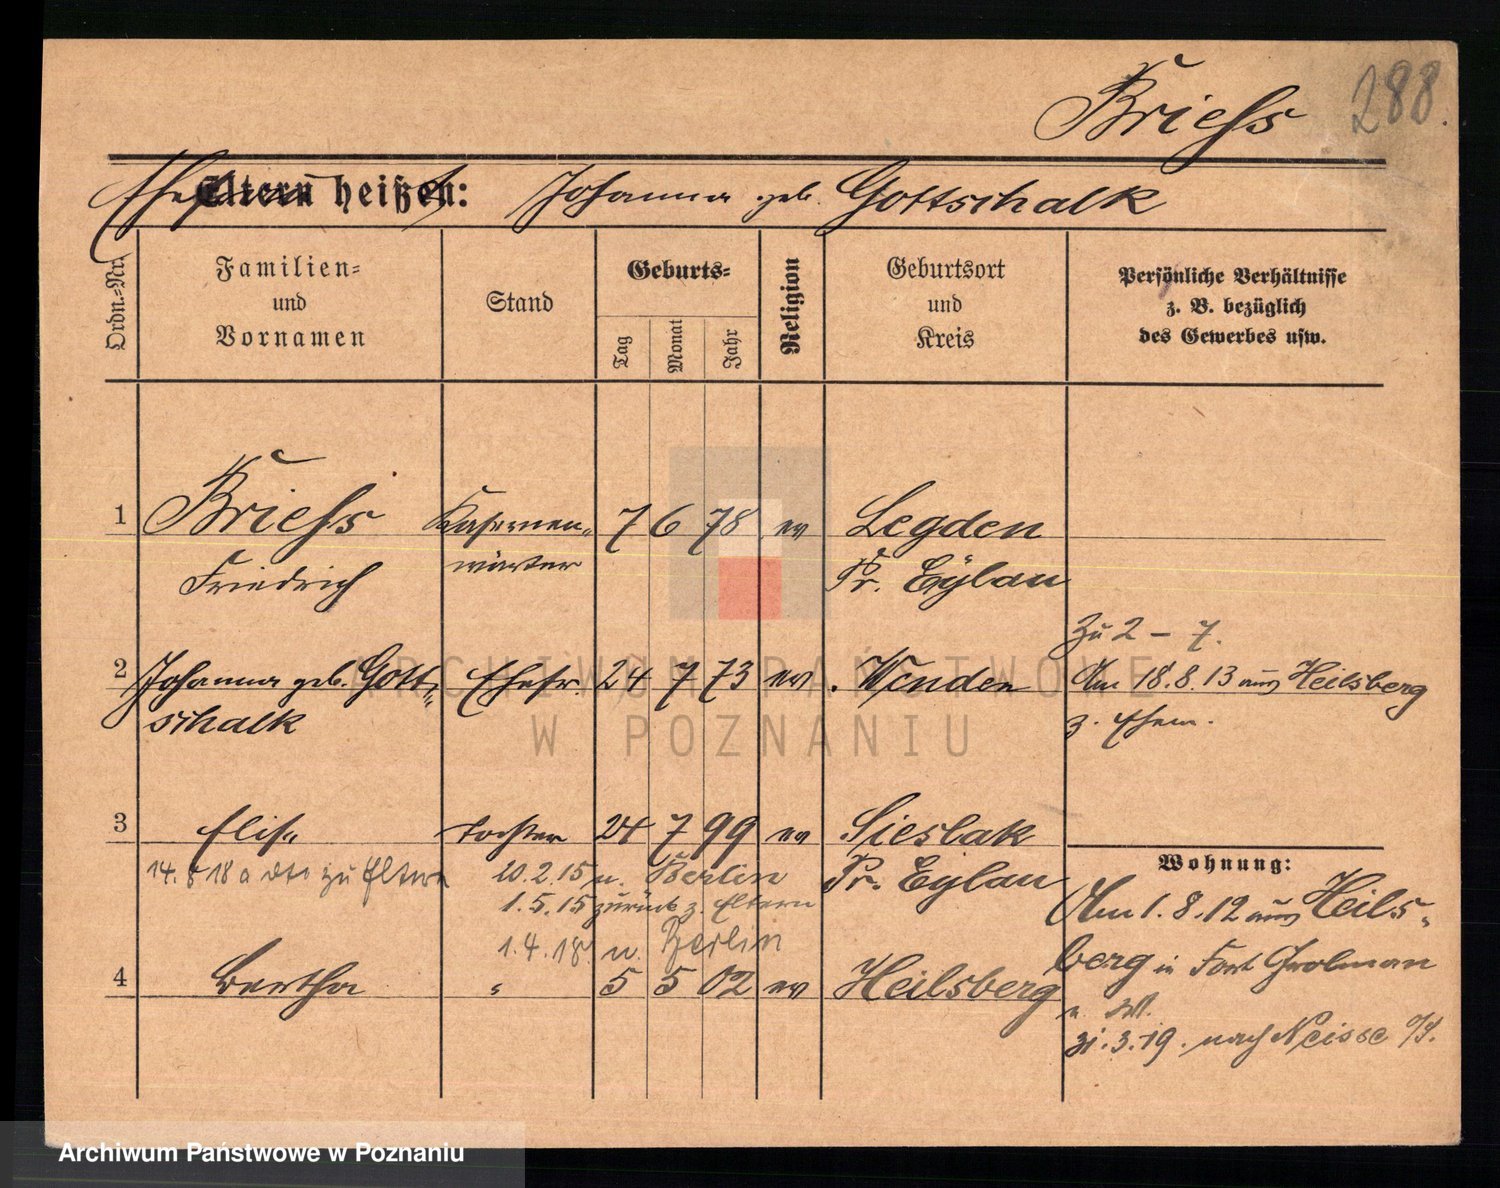 288.
Briess
Eltern heißen: Johanna geb. Gottschalk
Ordn.-Nr.
Familien-
und
Vornamen
Stand
Geburts-
Tag
Monat
Jahr
Religion
Geburtsort
und
Kreis
Persönliche Verhältnisse
z. B. bezüglich
des Gewerbes usw.
1 Briess Kasernen- 7 6 78 ev Legden
Friedrich wärter Pr. Eylau
Zu 2 - 7.
2 Johanna geb. Gott- Ehefr. 24 7 73 ev. Wenden Am 18.8.13 aus Heilsberg
schalk z. Ehem.
3 Elise Tochter 24 7 99 ev Sieslak
14. 8 18 zu Eltern 20.2.15 n. Berlin Pr. Eylau
1.5.15 zurück z. Eltern
1.4.18. n. Berlin
4 Bertha " 5 5 02 ev Heilsberg
Wohnung:
Am 1.8.12 aus Heils-
berg in Fort Grolman
31.3.19. nach Neisse O/S.
ARCHIWUM PAŃSTWOWE
W POZNANIU
Archiwum Państwowe w Poznaniu